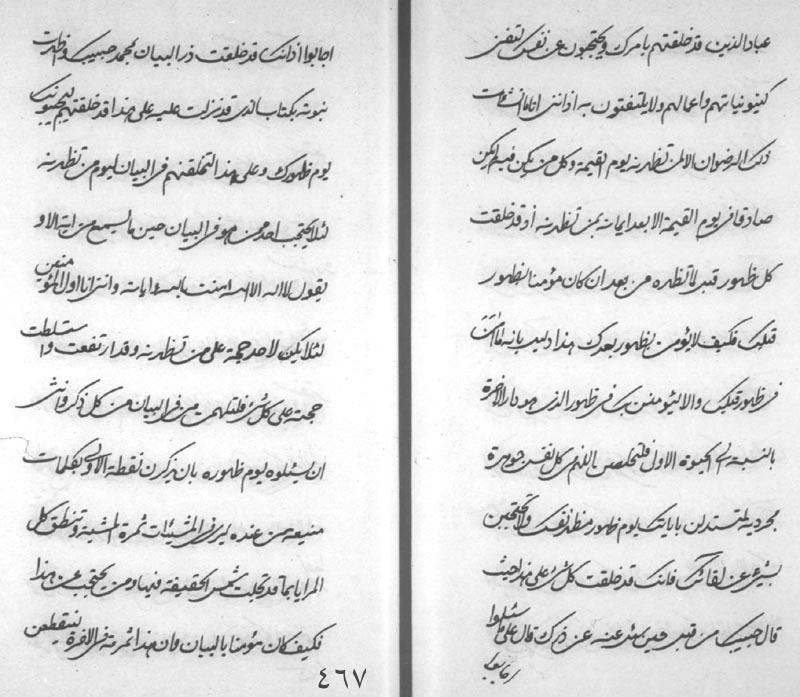 عباد الذين قد خلقتهم بامرك ويحتجبون عن نفس
كينونياتهم واعمالهم ولا يلتفتون به اذ انني انا
ذلك الرضوان الا لمن تظهرنه يوم القيمة وكل من يكن فيه
صادقا في يوم القيمة الا بعد ايمانه بمن تظهرنه اذ قد خلقت
كل ظهور قبل لما تظهره من بعد ان كان مؤمنا بظهور
قبلك فكيف لا يؤمن بظهور بعدك هذا دليل بانه ما امن
في ظهور قبلك والا ليؤمنن بك في ظهور الذي هو دار الاخرة
بالنسبة الى الحيوة الاولى فلتخلصن يا الهي كل نفس
لتستدلن باياتك يوم ظهور مظهر نفسك ولا تحتجبن
بشئ عن لقائك فانك قد خلقت كل شئ على هذا حيث
قال حبيبك من قبل حين سئل عنه عن ذكرك قال علي ما سئلوا
اجابوا
اجابوا اذ انك قد خلقت ذر البيان لمحمد حبيبك واظهرت
نبوته بكتاب الذي قد نزلت عليه على هذا قد خلقتهم ليجيبونك
يوم ظهورك وعلى هذا لتخلقنهم في البيان ليوم من تظهرنه
لئلا يحتجب احد ممن هو في البيان حين ما يسمع من اية الا و
يقول لا اله الا الله امنت بالله واياته وانني انا اول المؤمنين
لئلا يكن لاحد حجة على من تظهرنه وقد ارتفعت واستسلطت
حجته على كل شئ فلتلهمن من في البيان من كل ذكر وانثى
ان يسئلوه يوم ظهوره بان يذكرن نقطة الاولى بكلمات
منيعة من عنده ليرى في المشيئات ثمرة المشية وتنطق كل
المرايا بما قد تجلت شمس الحقيقة فيها ومن يحتجب عن هذا
فكيف كان مؤمنا بالبيان وان هذا ثمرته في الاخرة لينقطعن
٤٦٧